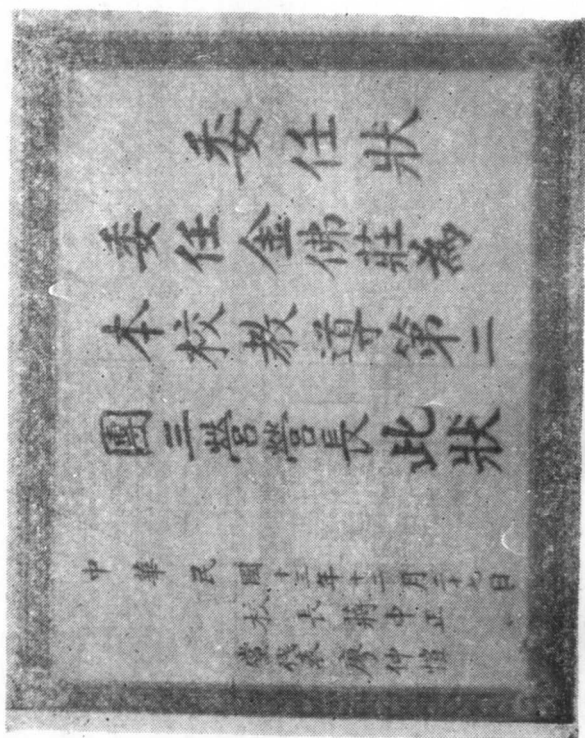 委任狀
委任金佛莊為
本校教導第二
團三營營長此狀
中華民國十三年十二月二十七日
校長蔣中正
黨代表廖仲愷